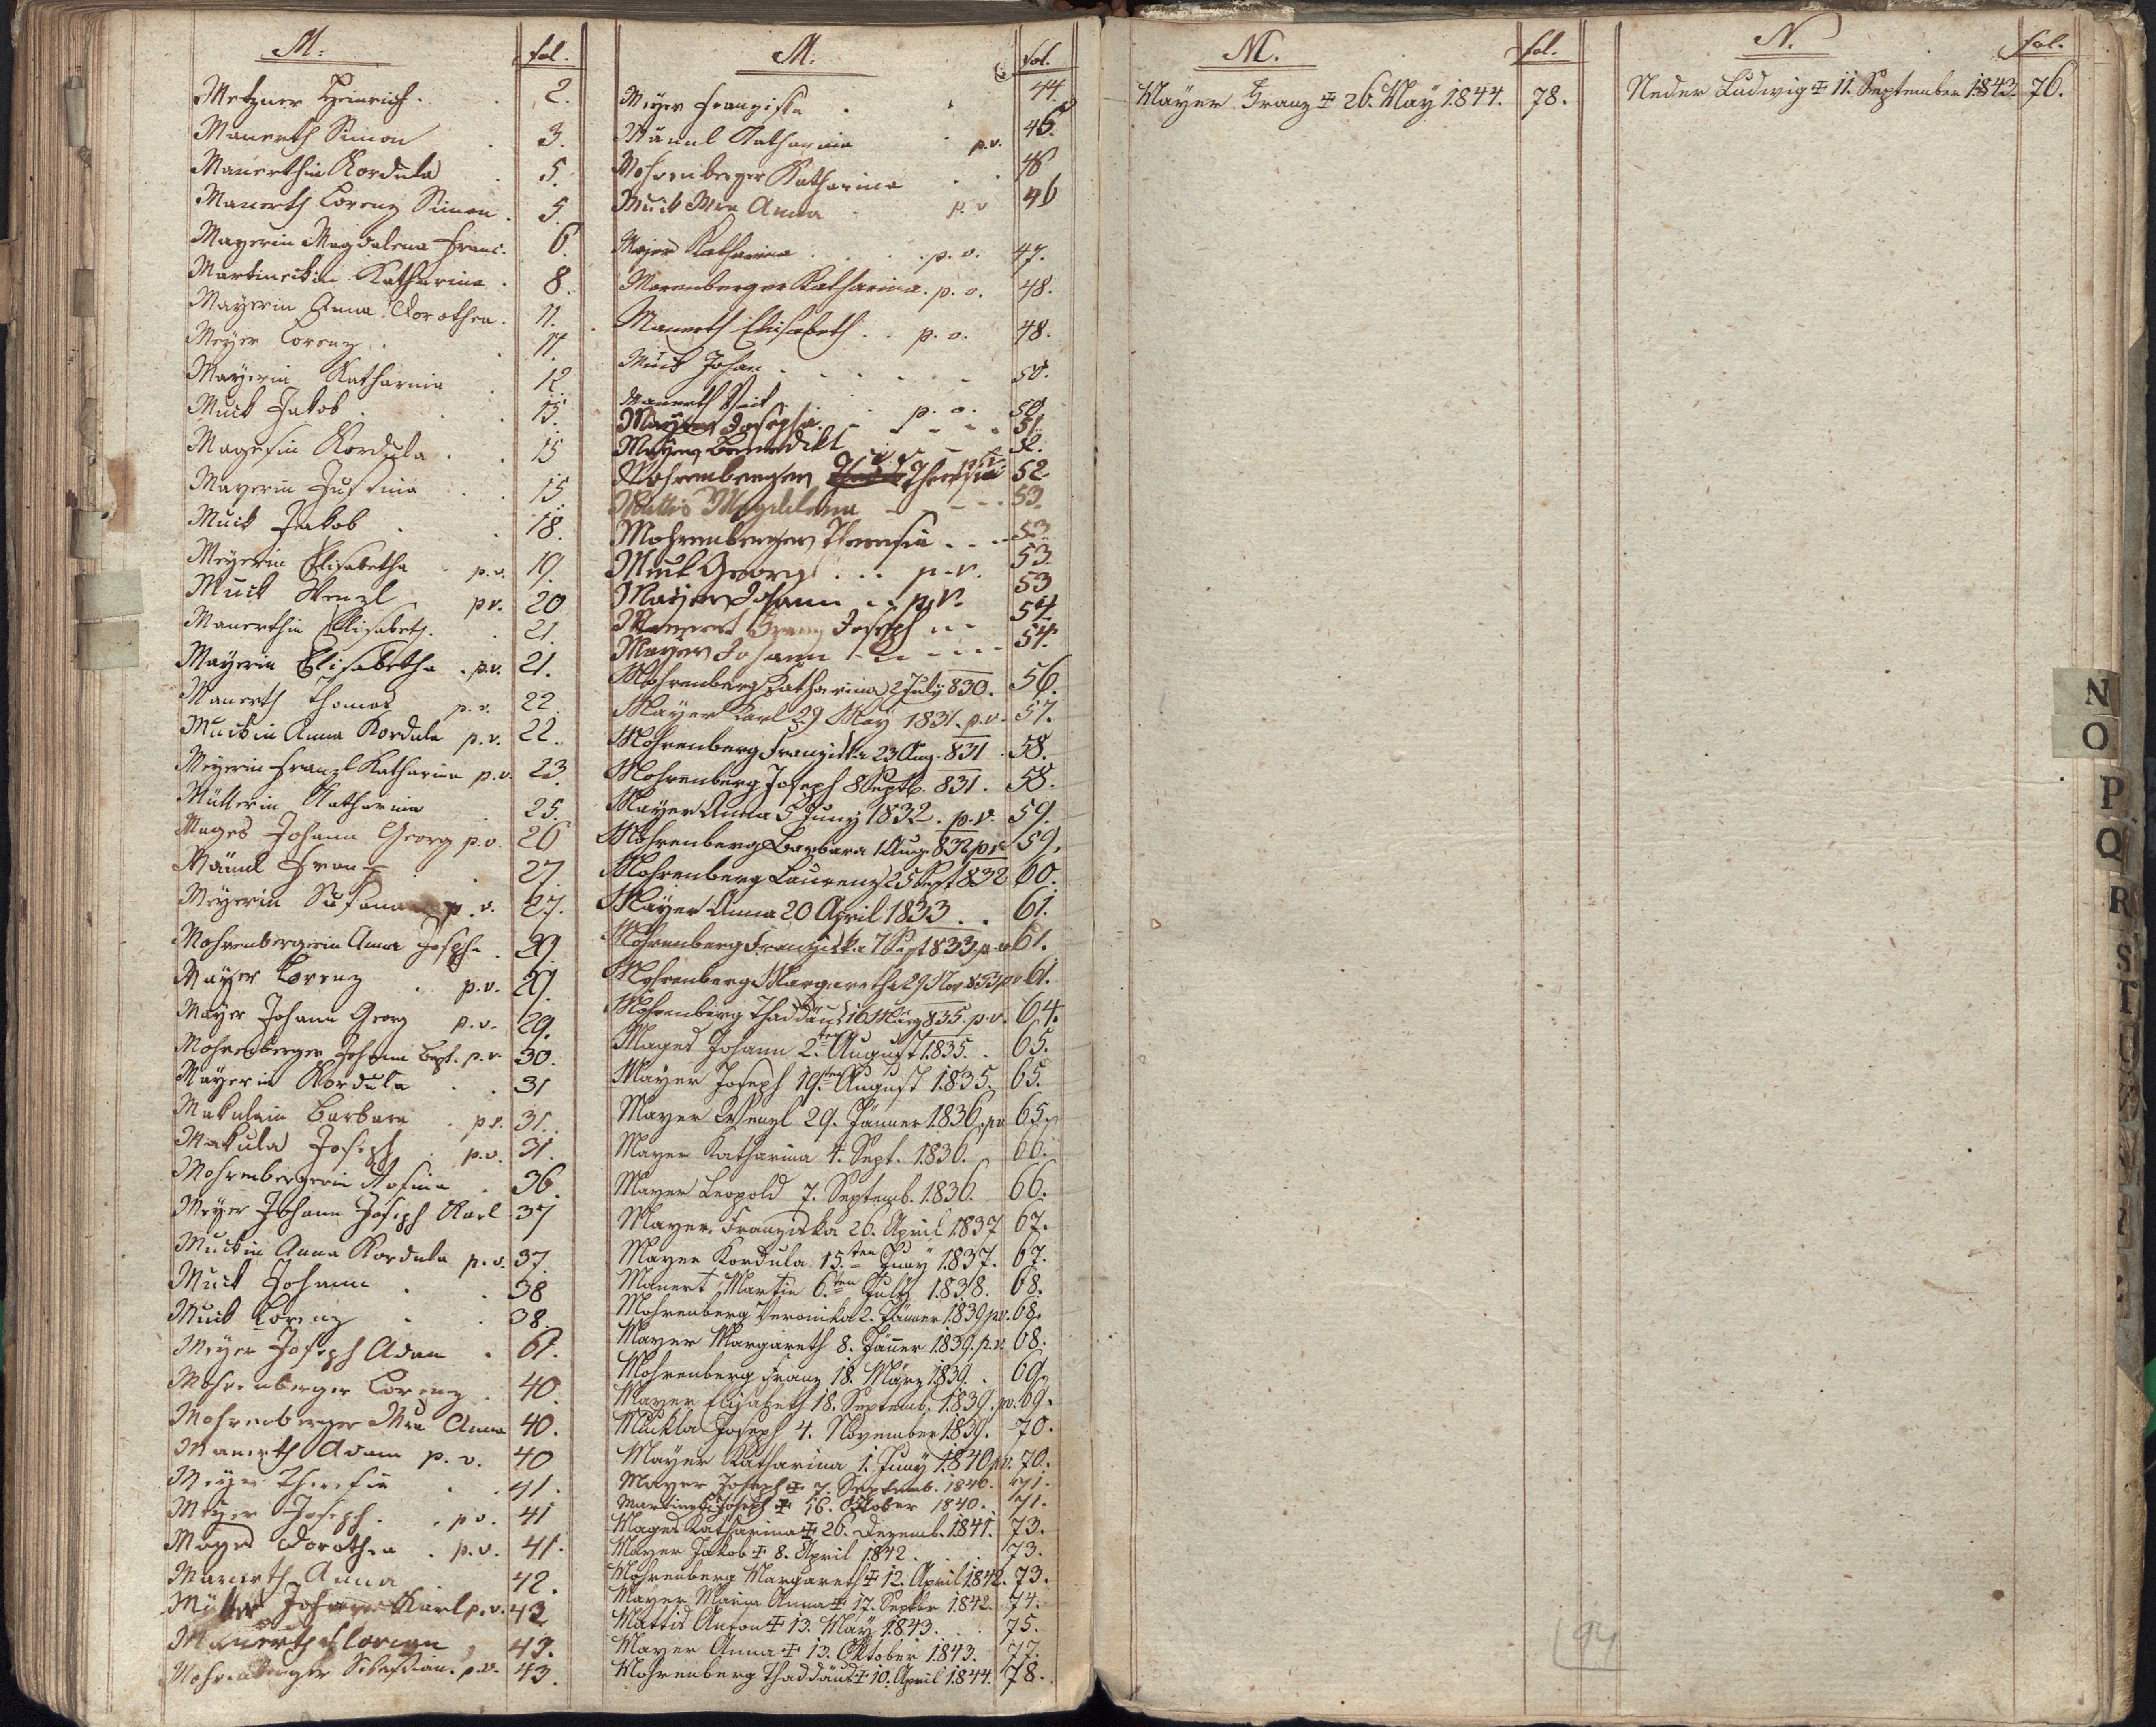 M: fol.
Metzner Heinrich. 2.
Manerth Simon 3.
Manerthin Kordula 5.
Manerth Lorenz Simon. 5.
Mayerin Magdalena Franc. 6.
Martinetzin Katharina. 8.
Mayerin Anna Dorothea. 11.
Meyer Lorenz. 11.
Mayerin Katharina 12.
Muck Jakob. 15.
Magesin Kordula. 15
Mayerin Justina 15
Muck Jakob 18.
Meyerin Elisabetha p.v. 19.
Muck Wenzl pv. 20
Manerthin Elisabeth. 21.
Mayerin Elisabetha. p.v. 21.
Manerth Thomas p.v. 22.
Muckin Anna Kordula p.v. 22.
Meyerin Franzl Katharina p.v. 23
Müllerin Katharina 25.
Mages Johann Georg p.v. 26
Männl Franz 27.
Meyerin Susanna p.v. 27.
Mohrenbergerin Anna Josepha. 29.
Mayer Lorenz p.v. 29.
Mayer Johann Georg p.v. 29.
Mohrenberger Johann Bapt. p.v. 30.
Mayerin Kordula 31
Makulain Barbara p.v. 31.
Makula Joseph p.v. 31.
Mohrenbergerin Rosina 36.
Meyer Johann Joseph Karl 37
Muckin Anna Kordula p.v. 37.
Muck Johann 38
Muck Lorenz 38.
Meyer Joseph Adam. 61.
Mohrenberger Lorenz. 40.
Mohrenberger Mra Anna 40.
Manerth Adam p.v. 40
Meyer Theresia 41.
Meyer Joseph. p.v. 41
Mages Dorothea. p.v. 41.
Manerth Anna 42.
Johann Karl p.v. 42
Manerth Florian 43.
Mohrenberger Sebastian. p.v. 43.
M. fol.
Meyer Franziska 44.
Männl Katharina p.v. 45.
Mohrenberger Katharina 46
Muck Mra Anna p.v 46
Majer Katharina p.v. 47.
Morenberger Katharina. p.v. 48.
Manerth Elisabeth p.v. 48.
Muck Johan 50.
Manerth Veit p.v. 50.
Mayer Josepha. 51.
Mayer Benedikt 52.
Mohrenberger Theresia 52.
Mattis Magdalena 53.
Mohrenberger Theresia 53.
Muck Georg p.v. 53
Mayer Johann p.v. 53
Franz Joseph 54.
Mayer Johann 54.
Mohrenberg Katharina 2 July 830. 56.
Mayer Karl 29 May 1831. p.v. 57.
Mohrenberg Franziska 23 Aug. 831 58.
Mohrenberg Joseph 8 Septb. 831. 58.
Mayer Anna 5 Juny 1832. p.v. 59.
Mohrenberg Barbara 1 Aug. 832 pv 59.
Mohrenberg Laurenz 25 Sept 832 60.
Mayer Anna 20 April 1833. 61.
Mohrenberg Franziska 7 Sept 833. p.v 61.
Mohrenberg Margaretha 29 Nov 833 pv 61.
Mohrenberg Thaddäus 16 März 835. p.v. 64.
Mages Johann 2.ten August 1835. 65.
Mayer Joseph 19.ten August 1835. 65.
Mayer Wenzl 29. Jänner 1836. pv 65.
Mayer Katharina 4. Sept. 1836. 66.
Mayer Leopold 7. Septemb. 1836. 66.
Mayer Franziska 26. April 1837 67.
Mayer Kordula 15.ten Juny 1837. 67.
Manert Martin 6.ten July 1838. 68.
Mohrenberg Veronika 2. Jänner 1839 pv. 68.
Mayer Margareth 8. Jäner 1839. p.v. 68.
Mohrenberg Franz 18. März 1839. 69.
Mayer Elisabeth 18. Septemb. 1839. pv. 69.
Muckla Joseph 4. November 1839. 70.
Mayer Katharina 1. Juny 1840 pv. 70.
Mayer Joseph ‡ 7. Septemb. 1840. 71.
Martinetz Joseph ‡ 16. Oktober 1840. 71.
Mages Katharina ‡ 26. Dezemb. 1841. 73.
Mayer Jakob ‡ 8. April 1842. 73.
Mohrenberg Margareth ‡ 12. April 1842. 73.
Mayer Maria Anna ‡ 17. Septbr 1842. 74.
Mattis Anton ‡ 13. May 1843. 75.
Mayer Anna ‡ 13. Oktober 1843. 77.
Mohrenberg Thaddäus ‡ 10. April 1844. 78.
M. fol.
Mayer Franz ‡ 26. May 1844. 78.
N. fol.
Neder Ludwig ‡ 11. September 1843. 76.
94
N
O
P
Q
R
S
T
U